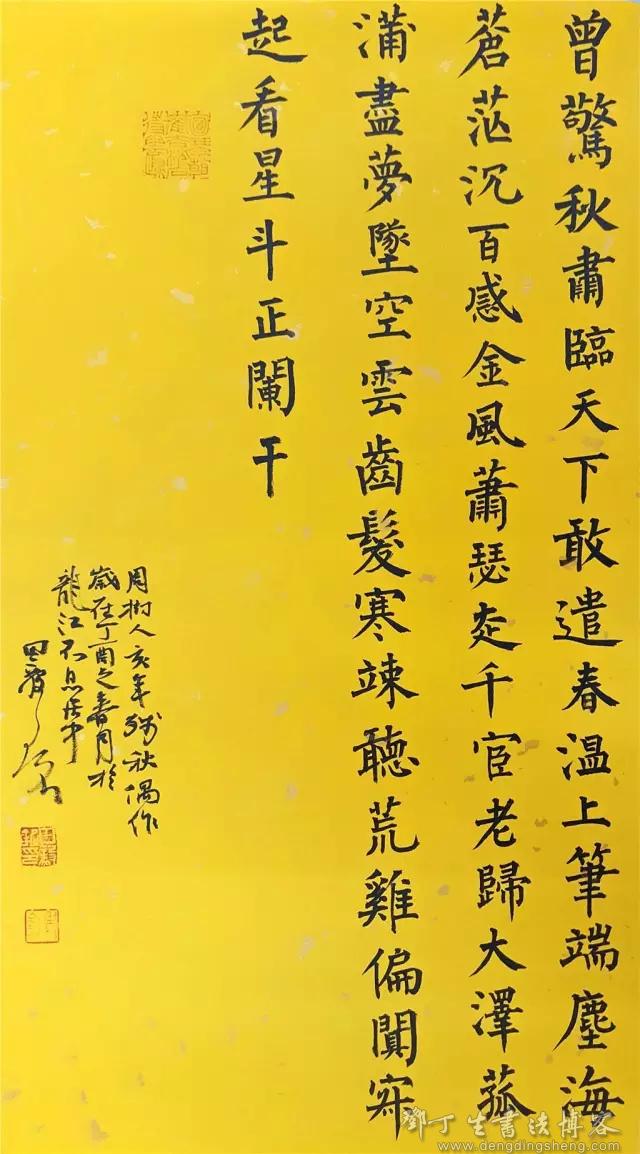 曾驚秋肅臨天下敢遣春温上筆端塵海
蒼茫沉百感金風蕭瑟走千官老歸大澤菰
蒲盡夢墜空雲齒髮寒竦聽荒雞偏闃寂
起看星斗正闌干
周樹人亥年殘秋偶作
歲在丁酉之春月於
龍江不息居中
鄧丁生書法博客
www.dengdingsheng.com